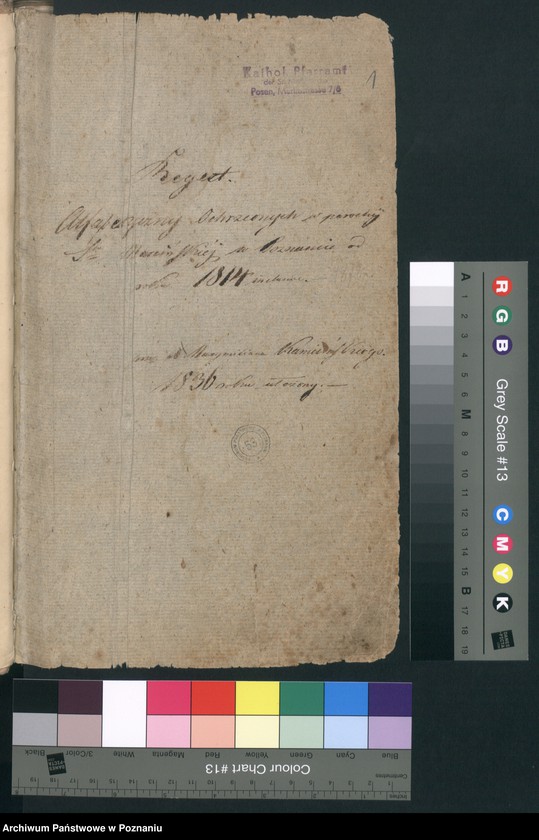 Kathol. Pfarramt
Posen,
1
Regest.
Alfabetyczny Ochrzconych w parochij
St. Marcińskiéj w Poznaniu od
roku 1814 inclusive.
Kamieńskiego
1836 roku ułożony. —
55
A 1 2 3 4 5 6 M 8 9 10 11 12 13 14 15 B 17 18 19
R G B Grey Scale #13 C M Y K
DANES PICTA
Black 3/Color White Magenta Red Yellow Green Cyan Blue
Colour Chart #13
Centimetres
Inches
Archiwum Państwowe w Poznaniu